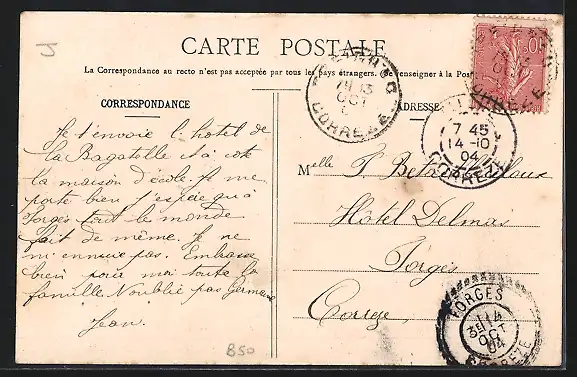 CARTE POSTALE
La Correspondance au recto n'est pas acceptée par tous les pays étrangers. Se renseigner à la Poste
CORRESPONDANCE
ADRESSE
Je t'envoie l'hotel de
la Bagatelle et à coté
la maison d'école. Je me
porte bien j'espère qu'à
Forgès tout le monde
fait de même. Je ne
m'ennuie pas. Embrasse
bien pour moi toute la
famille N'oublie pas Germaine
Jean.
Melle F.
Hôtel Delmas
Forgès
Corrèze
10
13
OCT
CORREZE
7 45
14 -10
04
CORREZE
FORGES
14
OCT
04
CORREZE
850